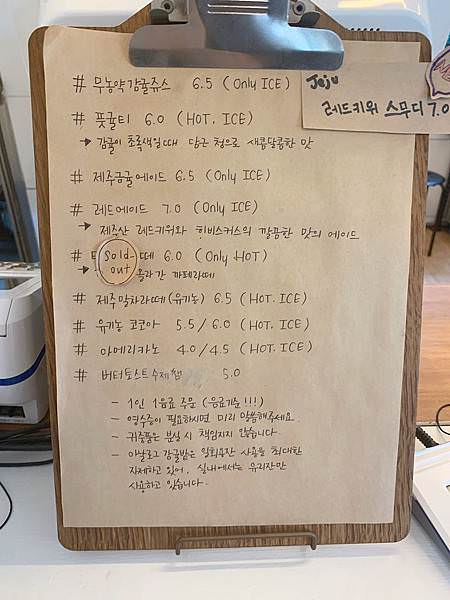 # 무농약감귤쥬스 6.5 (Only ICE)
Jeju
레드키위 스무디 7.0
# 풋귤티 6.0 (HOT. ICE)
→ 감귤이 초록색일때 담근 청으로 새콤달콤한 맛
# 제주금귤에이드 6.5 (Only ICE)
# 레드에이드 7.0 (Only ICE)
→ 제주산 레드키위와 히비스커스의 깔끔한 맛의 에이드
# Sold-out 떼 6.0 (Only HOT)
→ 올라간 카페라떼
# 제주말차라떼(유기농) 6.5 (HOT. ICE)
# 유기농 코코아 5.5/6.0 (HOT. ICE)
# 아메리카노 4.0/4.5 (HOT. ICE)
# 버터토스트수제잼 5.0
- 1인 1음료 주문 (음료기준!!!)
- 영수증이 필요하시면 미리 말씀해주세요
- 귀중품은 분실 시 책임지지 않습니다
- 아날로그 감귤밭은 일회용잔 사용을 최대한
자제하고 있어, 실내에서는 유리잔만
사용하고 있습니다.